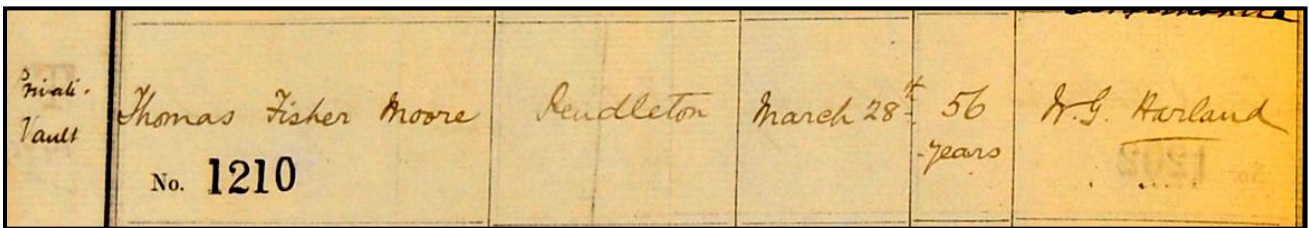 Private.
Vault
Thomas Fisher Moore
No. 1210
Pendleton
March 28th
56
years
W. G. Harland